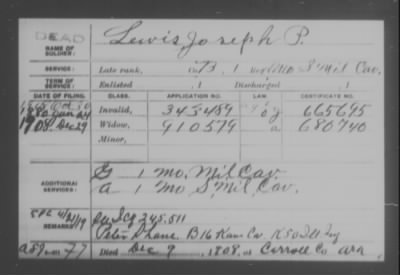 DEAD
NAME OF SOLDIER: Lewis, Joseph P.
SERVICE: Late rank, Co. B, 1 Mo S Mil Cav.
TERM OF SERVICE: Enlisted , 1 Discharged , 1
DATE OF FILING. CLASS. APPLICATION NO. LAW. CERTIFICATE NO.
1880 Jan 24 Invalid, 345489 665695
1908. Dec 29 Widow, 910579 a 680740
Minor,
ADDITIONAL SERVICES: G 1 Mo. Mil Cav.
a 1 Mo S. Mil Cav.
REMARKS: 345.511
Peter Shane. B 16 Kans Cav K 50 Ill Inf
Died Dec 9, 1908, at Carroll Co Ark